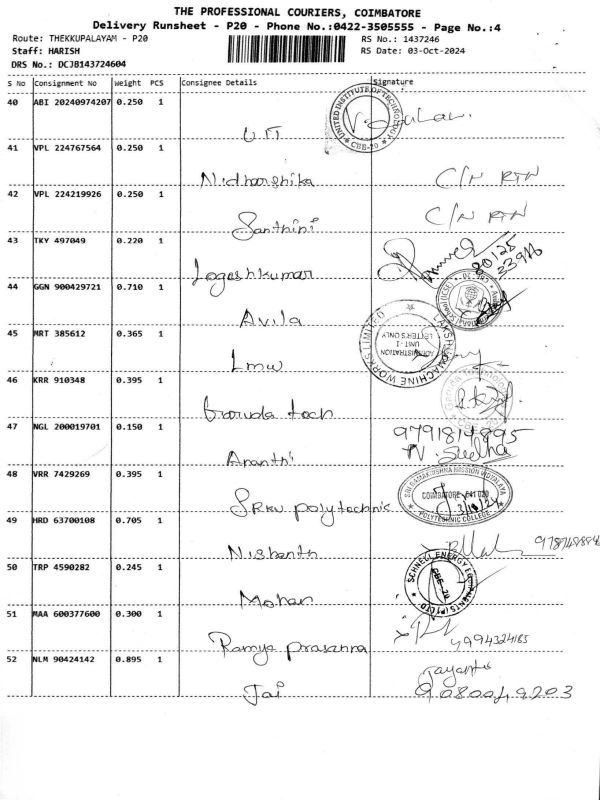 THE PROFESSIONAL COURIERS, COIMBATORE
Delivery Runsheet - P20 - Phone No.:0422-3505555 - Page No.:4
Route: THEKKUPALAYAM - P20 RS No.: 1437246
Staff: HARISH RS Date: 03-Oct-2024
DRS No.: DCJB143724604
S No Consignment No Weight PCS Consignee Details Signature
40 ABI 20240974207 0.250 1
UIT UNITED INSTITUTE OF TECHNOLOGY * CBE-20 *
41 VPL 224767564 0.250 1
Nidharshika C/N RTN
42 VPL 224219926 0.250 1
Santhini C/N RTN
43 TKY 497049 0.220 1
Logeshkumar
44 GGN 900429721 0.710 1
Avila
45 MRT 385612 0.365 1
Lmw LAKSHMI MACHINE WORKS LIMITED ADMINISTRATION UNIT-I LETTERS ONLY
46 KRR 910348 0.395 1
Garuda tech
47 NGL 200019701 0.150 1 9791814895
Ananthi N. Sudha
48 VRR 7429269 0.395 1
SRKV polytechnic SRI RAMAKRISHNA MISSION VIDYALAYA COIMBATORE - 641 020 POLYTECHNIC COLLEGE 3/10/24
49 HRD 63700108 0.705 1
Nishanth
50 TRP 4590282 0.245 1
Mohan CBE-20
51 MAA 600377600 0.300 1
Ramya prasanna 9994324165
52 NLM 90424142 0.895 1 Jayanthi
Jai 9080049203